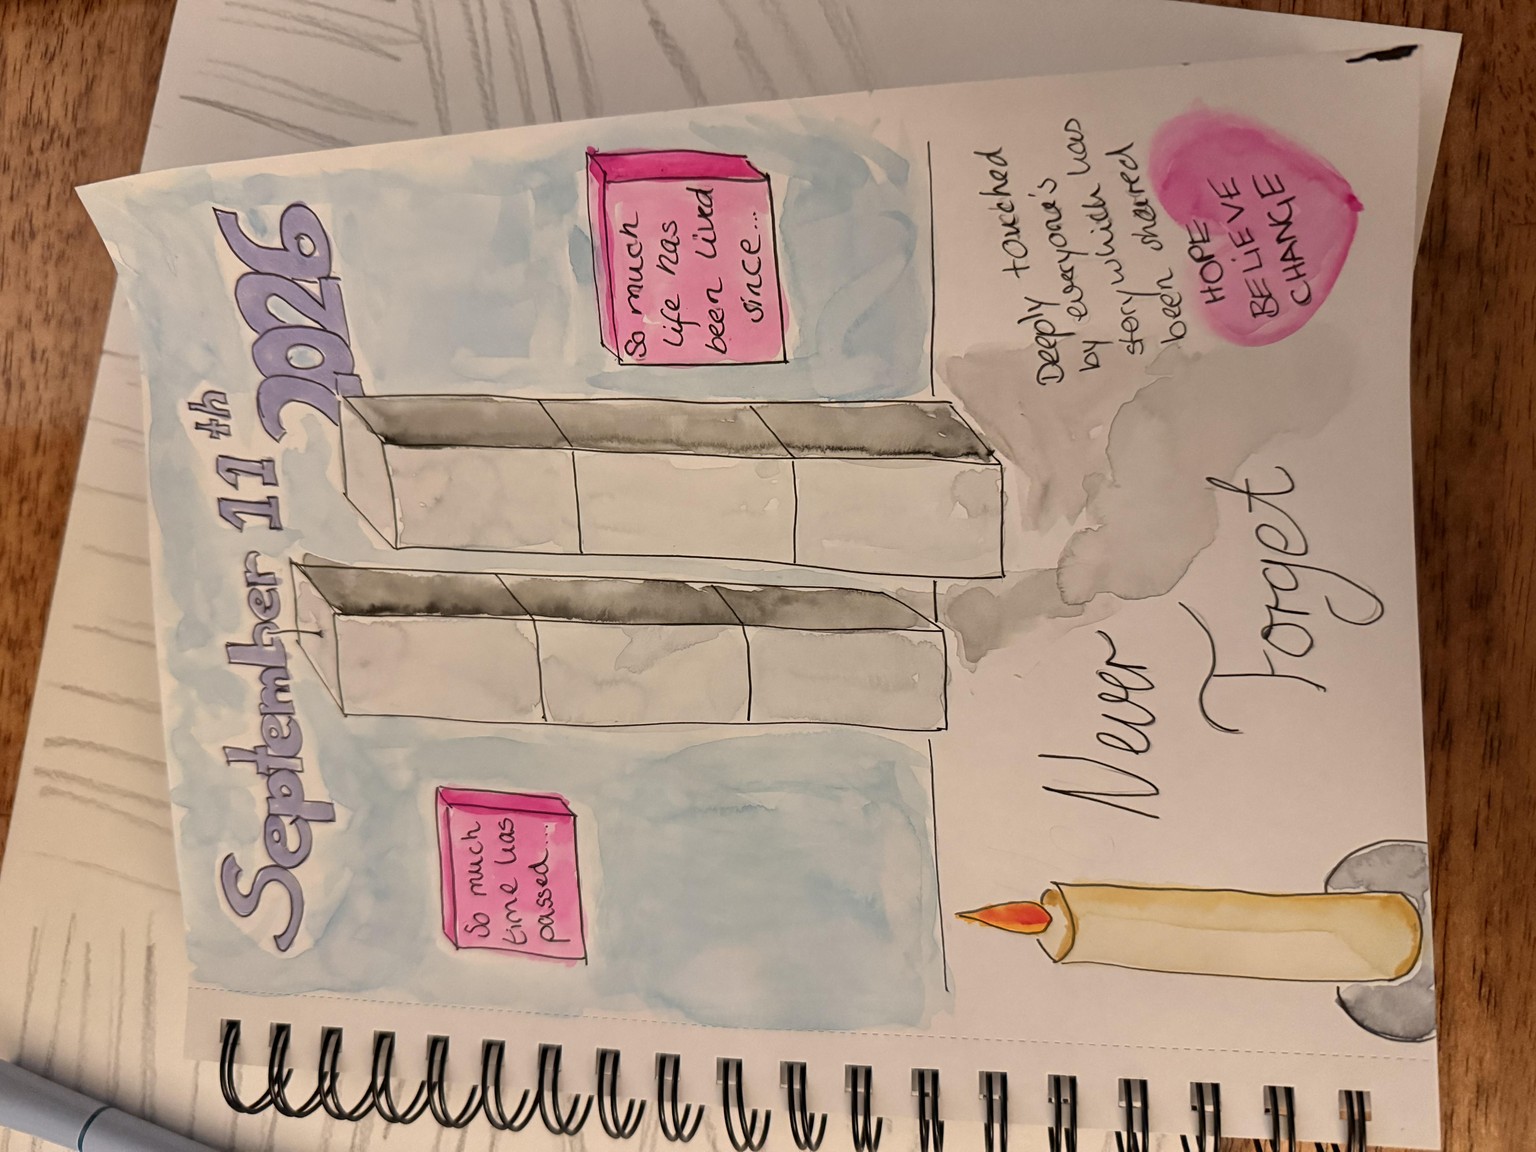 September 11th
2026
So much
time has
passed...
So much
life has
been lived
since...
Never
Forget
Deeply touched
by everyone's
story which was
been shared
HOPE
BELiEVE
CHANGE